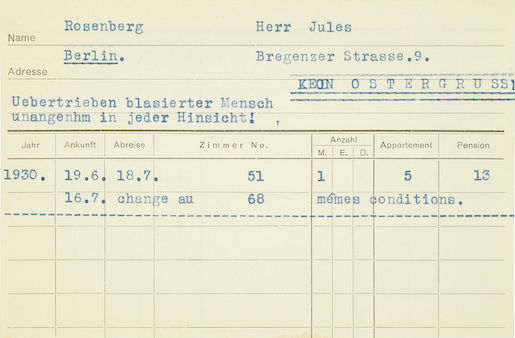 Rosenberg Herr Jules
Name
Berlin. Bregenzer Strasse.9.
Adresse
KEIN OSTERGRUSS!
Uebertrieben blasierter Mensch
unangenhm in jeder Hinsicht! ,
Jahr Ankunft Abreise Zimmer No. Anzahl Appartement Pension
M. E. D.
1930. 19.6. 18.7. 51 1 5 13
16.7. change au 68 mémes conditions.